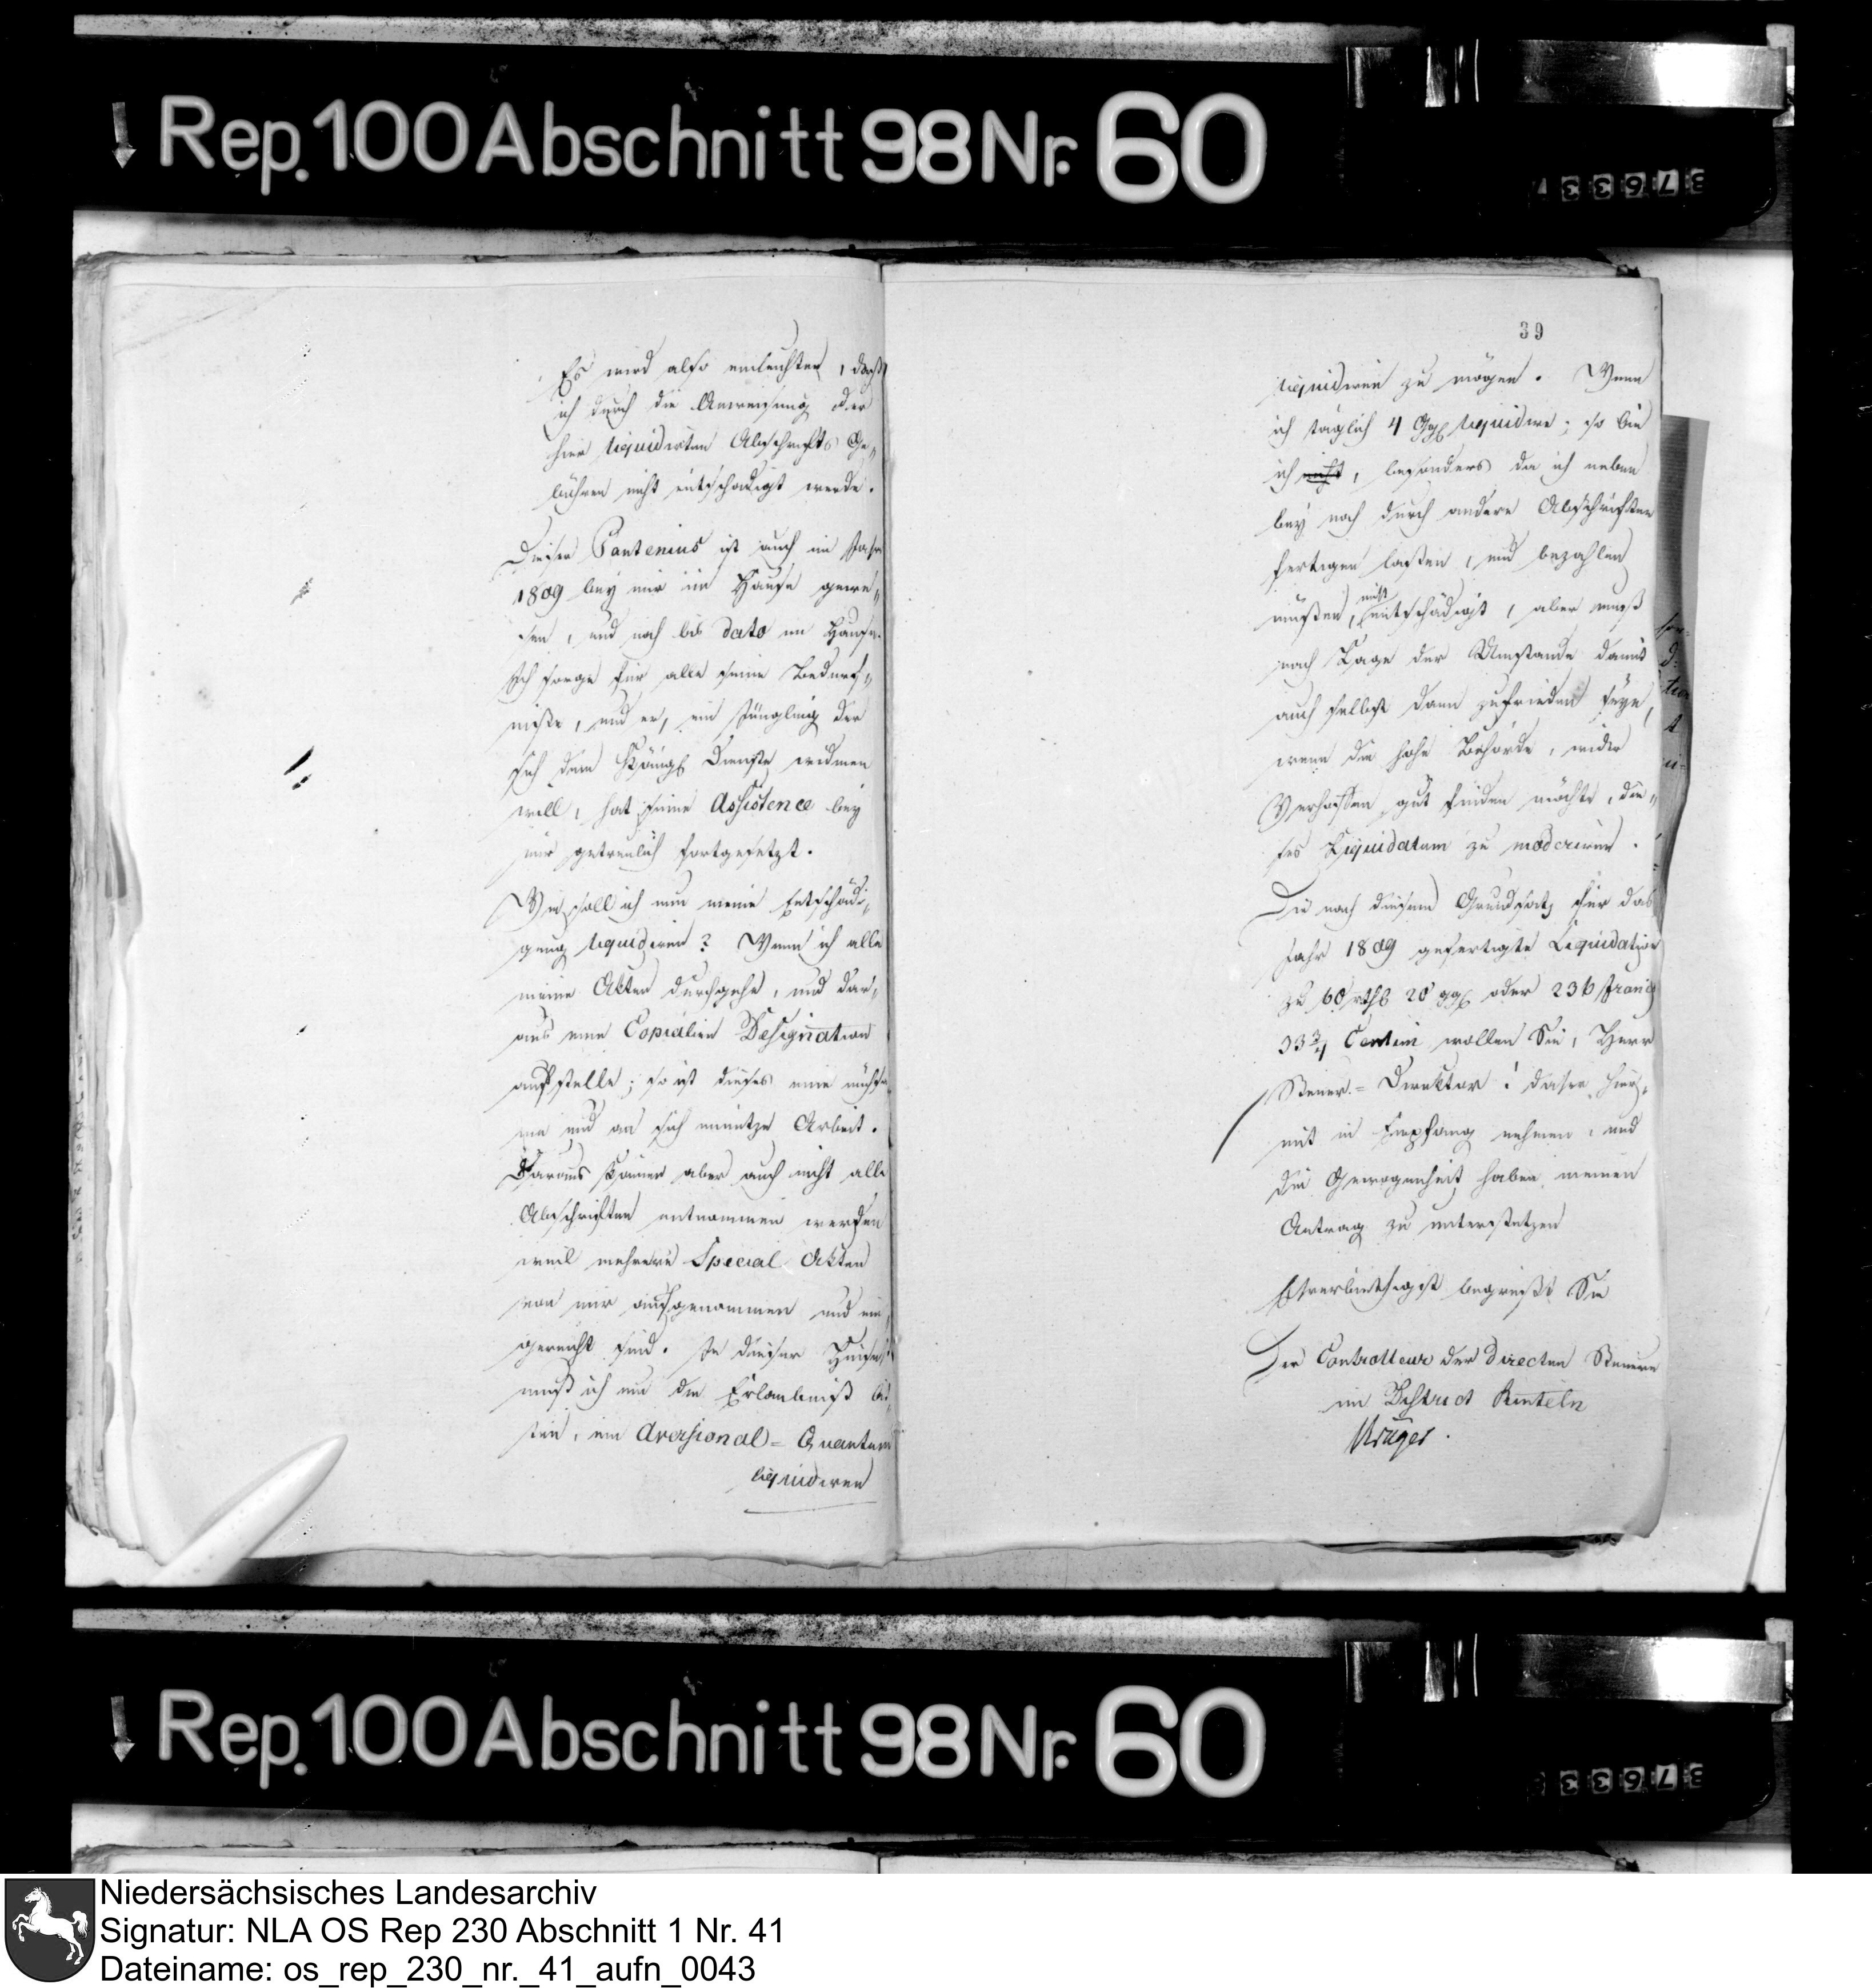 Rep. 100 Abschnitt 98 Nr. 60
Es wird also einleuchten, daß
ich durch die Anweisung der
hier liquidirten Abschrifts Ge„
bühren nicht entschädigt werde.
Dieser Pantenius ist auch im Jahr
1809 bey mir im Hause gewe„
sen, und noch bis dato im Hause.
Ich sorge für alle seine Bedürf„
niße, und er, ein Jüngling der
sich dem Königl Dienste widmen
will, hat seine Assistence bey
mir getreulich fortgesetzt.
Wie soll ich nun meine Entschädi„
gung liquidiren? Wenn ich alle
meine Akten durchgehe, und dar„
aus eine Copialien Designation
aufstelle; so ist dieses eine mühsa
me und an sich unnütze Arbeit.
Daraus können aber auch nicht alle
Abschriften entnommen werden
weil mehrere Special Akten
von mir aufgenommen und ein
gereicht sind. In dieser Hinsicht
muß ich um die Erlaubniß bit
ten, ein Aversional-Quantum
liquidiren
39
liquidiren zu mögen. Wenn
ich täglich 4 Ggl liquidire; so bin
ich nicht, besonders da ich neben
bey noch durch andere Abschriften
fertigen laßen, und bezahlen
müßen, nicht entschädigt, aber muß
nach Lage der Umstände damit
auch selbst dann zufrieden seyn,
wenn die hohe Behörde, wider
Verhoffen gut finden möchte, die„
ses Liquidatum zu moderiren.
Die nach diesem Grundsatz für das
Jahr 1809 gefertigte Liquidation
zu 60 rthl 20 ggl oder 236 Francs
33¾ Centim wollen Sie, Herr
Steuer-Direktor! daher hier„
mit in Empfang nehmen, und
die Gewogenheit haben meinen
Antrag zu unterstützen
Ehrerbiethigst begrüßt Sie
Der Controlleur der directen Steuern
im District Rinteln
Krüger.
Rep. 100 Abschnitt 98 Nr. 60
Niedersächsisches Landesarchiv
Signatur: NLA OS Rep 230 Abschnitt 1 Nr. 41
Dateiname: os_rep_230_nr._41_aufn_0043